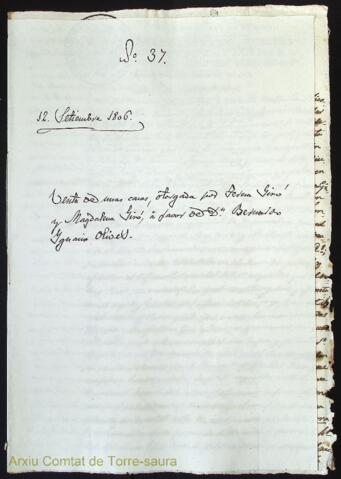 Nº 37.
12. Setiembre 1806.
Venta de unas casas, otorgada por Teresa Giró
y Magdalena Giró, à favor de Dn. Bernardo
Ygnacio Olives.
Arxiu Comtat de Torre-saura